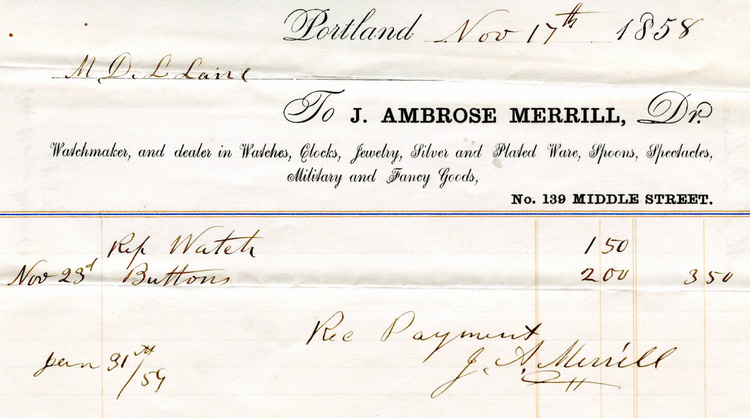 Portland Nov 17th 1858
M D. L Lane
To J. AMBROSE MERRILL, Dr.
Watchmaker, and dealer in Watches, Clocks, Jewelry, Silver and Plated Ware, Spoons, Spectacles,
Military and Fancy Goods,
No. 139 MIDDLE STREET.
Rep Watch 1 50
Nov 23d Buttons 2 00 3 50
Rec Payment
Jan 31th/59 J. A. Merrill